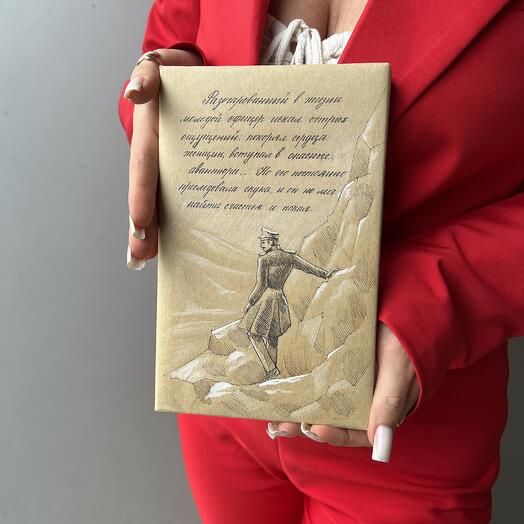 Разочарованный в жизни
молодой офицер искал острых
ощущений, покорял сердца
женщин, вступал в опасные
авантюры... Но его постоянно
преследовала скука, и он не мог
найти счастья и покоя.